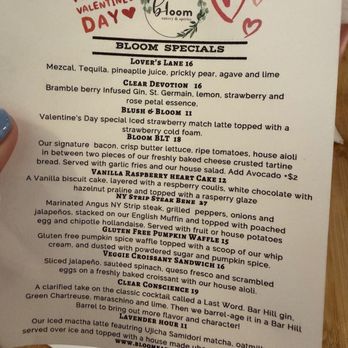 VALENTINES
DAY
bloom
eatery & spirits
BLOOM SPECIALS
LOVER'S LANE 16
Mezcal, Tequila, pineaplle juice, prickly pear, agave and lime
CLEAR DEVOTION 16
Bramble berry Infused Gin, St. Germain, lemon, strawberry and
rose petal essence.
BLUSH & BLOOM 11
Valentine's Day special Iced strawberry match latte topped with a
strawberry cold foam.
BLOOM BLT 18
Our signature bacon, crisp butter lettuce, ripe tomatoes, house aioli
in between two pieces of our freshly baked cheese crusted tartine
bread. Served with garlic fries and our house salad. Add Avocado +$2
VANILLA RASPBERRY HEART CAKE 12
A Vanilla biscuit cake, layered with a raspberry coulis, white chocolate with
hazelnut praline and topped with a raspberry glaze
NY STRIP STEAK BENE 27
Marinated Angus NY Strip steak, grilled peppers, onions and
jalapeños, stacked on our English Muffin and topped with poached
egg and chipotle hollandaise. Served with fruit or house potatoes
GLUTEN FREE PUMPKIN WAFFLE 15
Gluten free pumpkin spice waffle topped with a scoop of our whip
cream, and dusted with powdered sugar and pumpkin spice.
VEGGIE CROISSANT SANDWICH 16
Sliced jalapeño, sauteed spinach, queso fresco and scrambled
eggs on a freshly baked croissant with our house aioli.
CLEAR CONSCIENCE 19
A clarified take on the classic cocktail called a Last Word. Bar Hill gin,
Green Chartreuse, maraschino and lime. Then we barrel-age it in a Bar Hill
Barrel to bring out more flavor and character!
LAVENDER HOUR 11
Our Iced matcha latte feautring Ujicha Samidori matcha, oatmilk
served over ice and topped with a house made
WWW.BLOOM